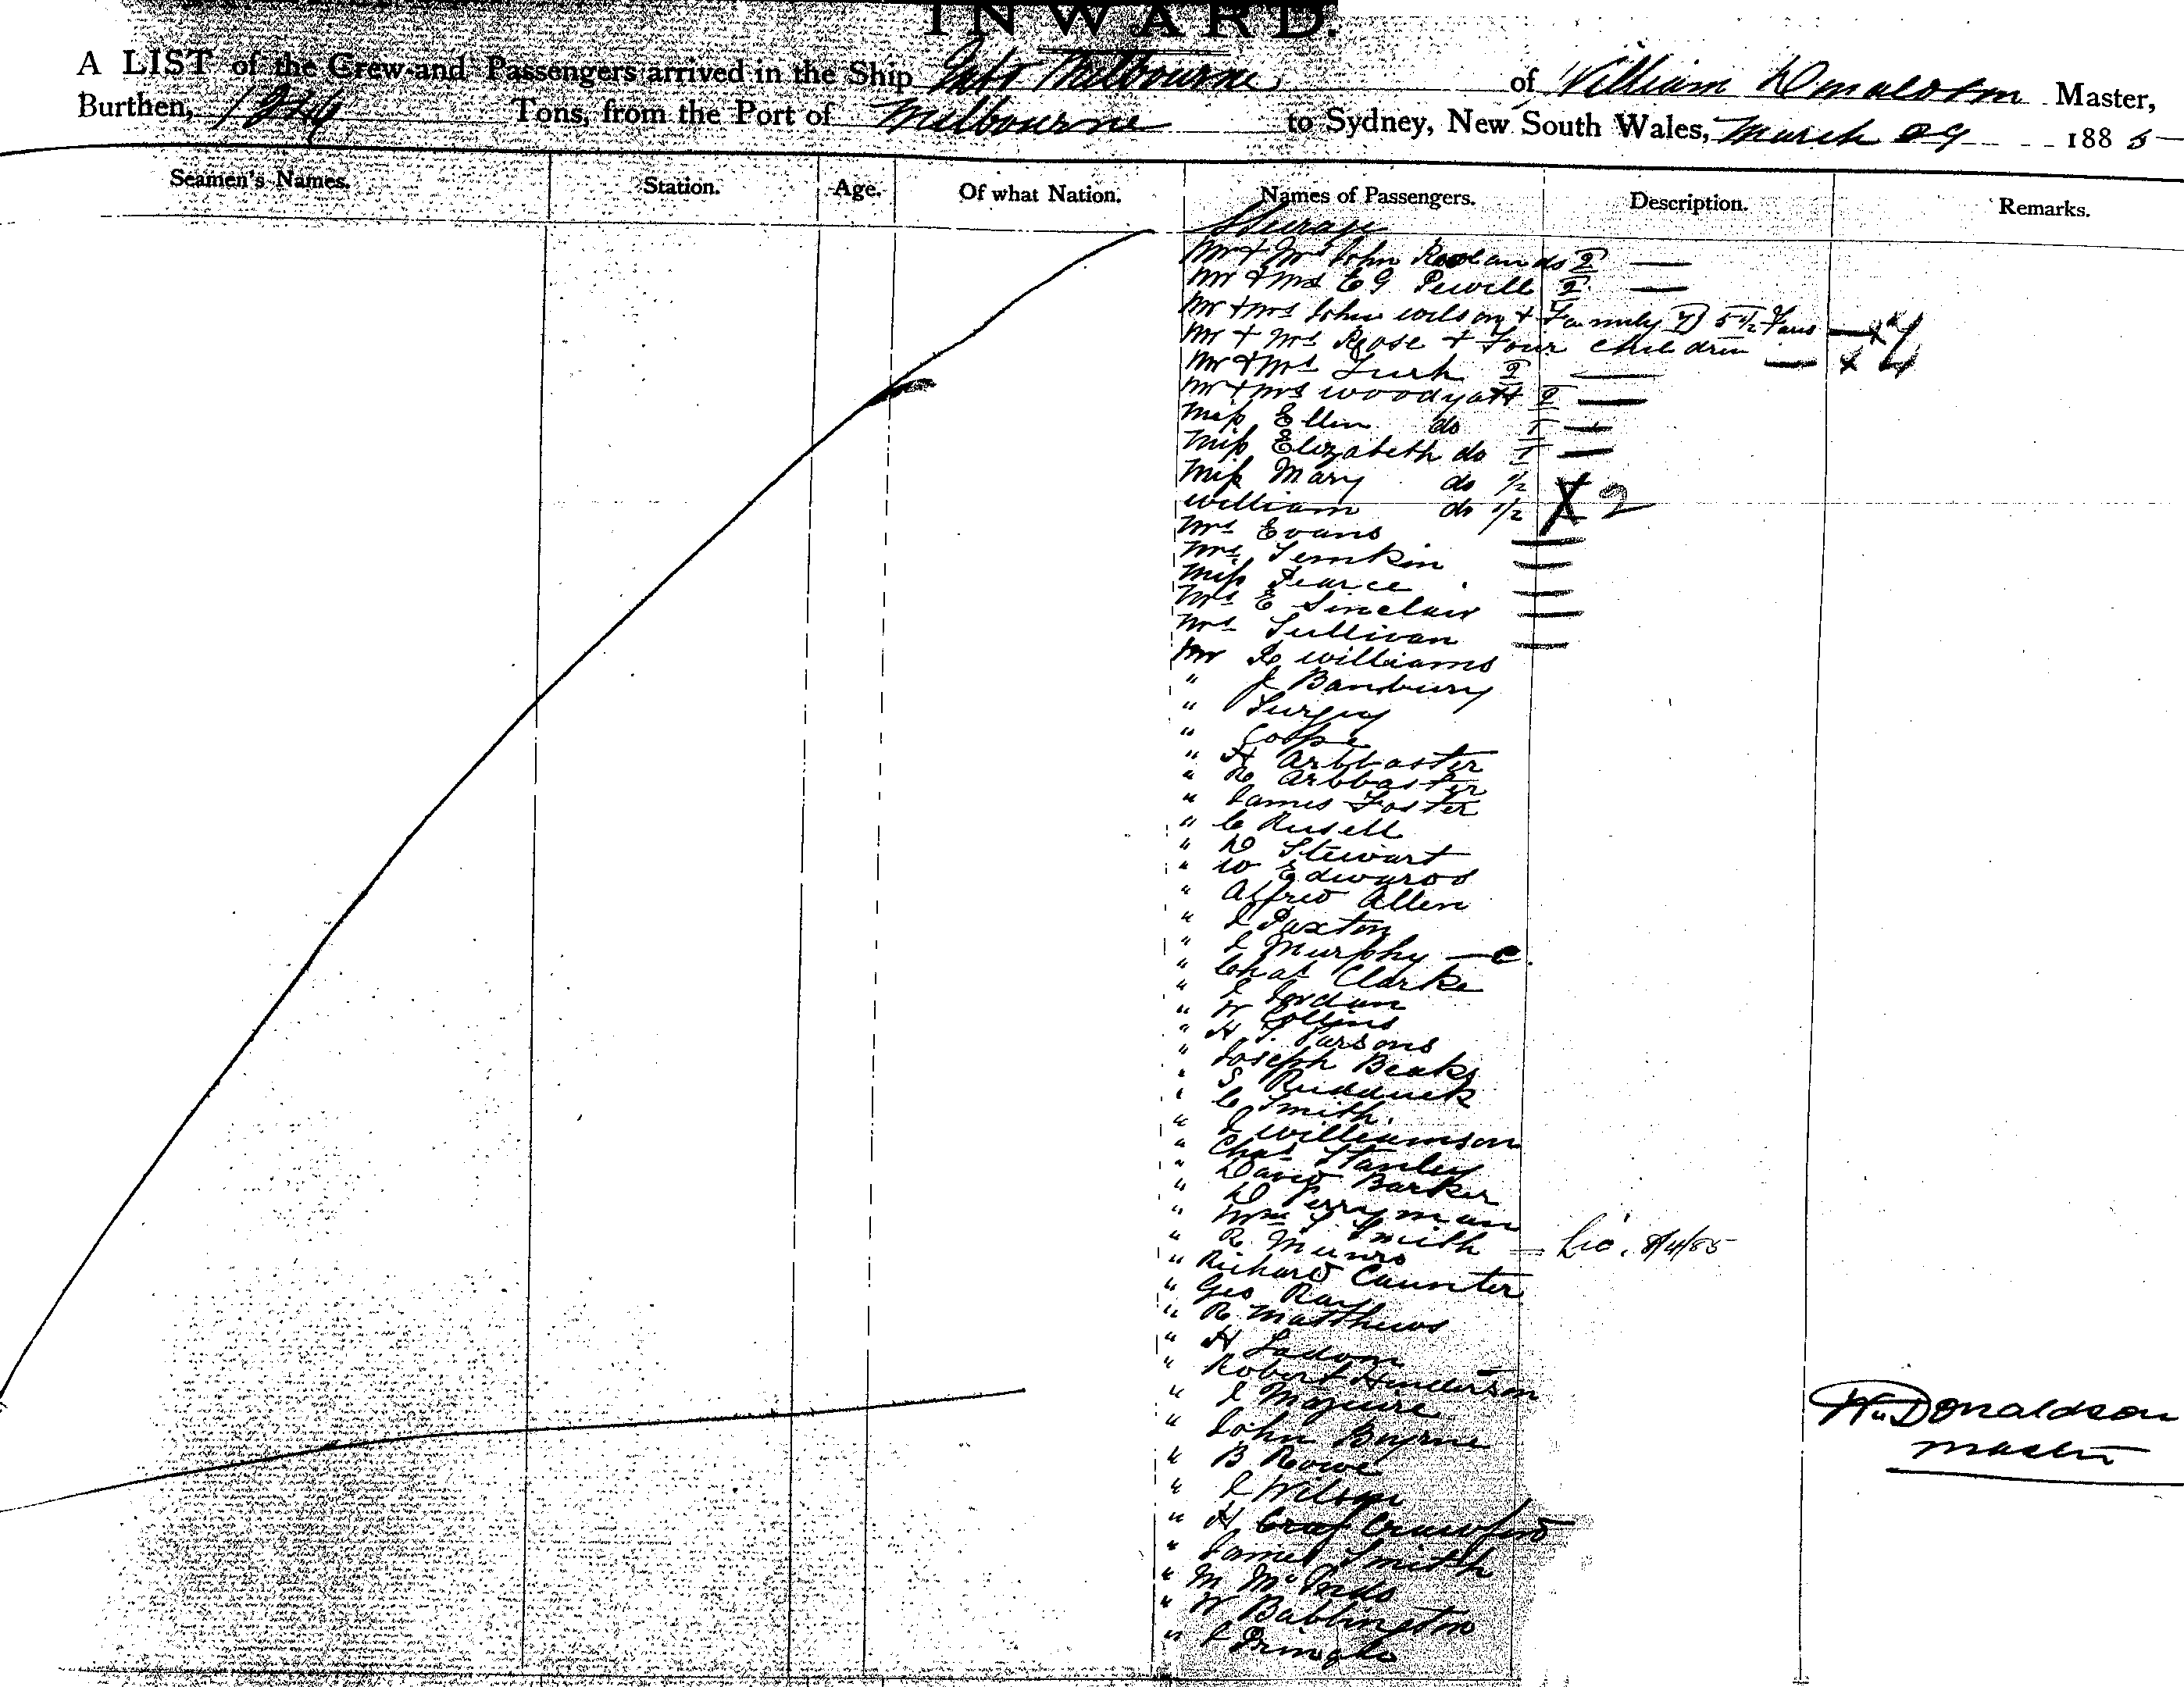 INWARD.
A LIST of the Crew and Passengers arrived in the Ship Melbourne of William Donaldson Master,
Burthen, Tons, from the Port of Melbourne to Sydney, New South Wales, March 29 1885
Seamen's Names. Station. Age. Of what Nation. Names of Passengers. Description. Remarks.
Steerage
Mr & Mrs John Rowlands 2 —
Mr & Mrs E G Pewill 2 —
Mr & Mrs John Wilson & Family 7) 5 1/2 Fares — x 4
Mr & Mrs Rose & Four Children — x 4
Mr & Mrs Turk 2 —
Mr & Mrs Woodyatt 2 —
Miss Ellen do 1 —
Miss Elizabeth do 1 —
Miss Mary do 1/2
William do 1/2 X 2
Mrs Evans —
Mrs Temkin —
Miss Pearce —
Mrs E Sinclair —
Mrs Sullivan —
Mr R Williams
" J Banbury
"
" Coope
" H Arbbaster
" R Arbbaster
" James Foster
" C Rusell
" D Stewart
" W Edwards
" Alfred Allen
" J Paxton
" J Murphy — c.
" Chas Clarke
" J Jordan
" W Collins
" H J. Parsons
" Joseph Beaks
" S Rudduck
" C Smith.
" J Williamson
" Chas Stanley
" David Barker
" D Perryman
" Wm J Smith
" R. Munro — Lic. 8/4/85
" Richard Caunter
" Geo Ray
" R Matthews
" H
" Robert Henderson
" J Maguire
" John Byrne
" B Rowe
" J Wilson
" H Crawford
" James Smith
" M
" W Babbington
" J Pringle
Wm Donaldson
Master